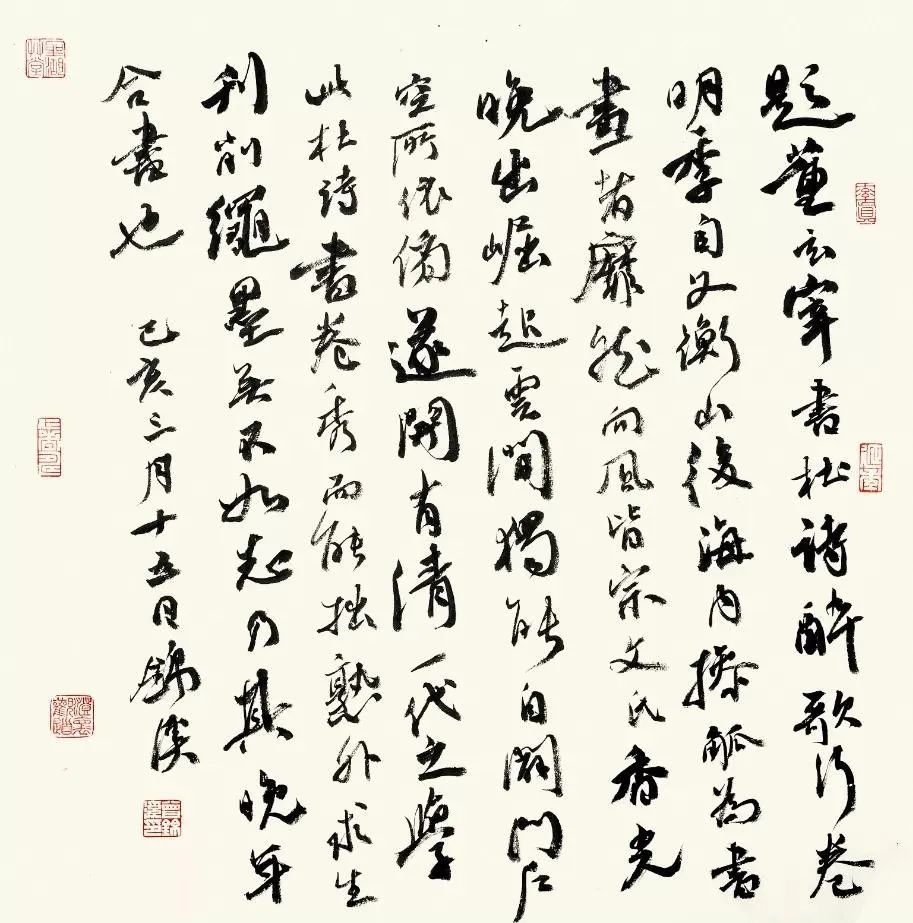 題董玄宰書杜詩醉歌行卷
明季自文衡山後海內操觚為書
畫者靡然向風皆宗文氏香光
晚出崛起雲間獨能自闢門戶
空所依傍遂開有清一代之學
此杜詩書卷秀而能拙熟外求生
刊削繩墨無不如志乃其晚年
合書也 己亥三月十五日錦溪